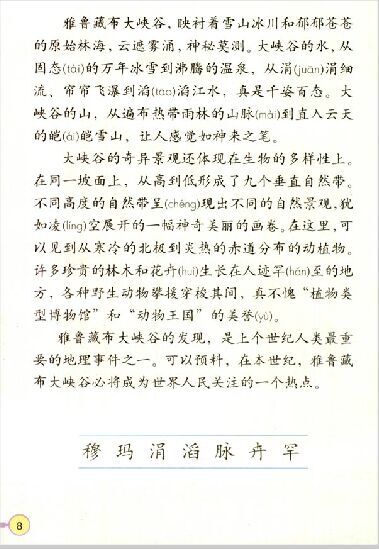 雅鲁藏布大峡谷，映衬着雪山冰川和郁郁苍苍
的原始林海，云遮雾涌，神秘莫测。大峡谷的水，从
固态(tài)的万年冰雪到沸腾的温泉，从涓(juān)涓细
流、帘帘飞瀑到滔(tāo)滔江水，真是千姿百态。大
峡谷的山，从遍布热带雨林的山脉(mài)到直入云天
的皑(ái)皑雪山，让人感觉如神来之笔。
大峡谷的奇异景观还体现在生物的多样性上。
在同一坡面上，从高到低形成了九个垂直自然带。
不同高度的自然带呈(chéng)现出不同的自然景观，犹
如凌(líng)空展开的一幅神奇美丽的画卷。在这里，可
以见到从寒冷的北极到炎热的赤道分布的动植物。
许多珍贵的林木和花卉(huì)生长在人迹罕(hǎn)至的地
方，各种野生动物攀援穿梭其间，真不愧“植物类
型博物馆”和“动物王国”的美誉(yù)。
雅鲁藏布大峡谷的发现，是上个世纪人类最重
要的地理事件之一。可以预料，在本世纪，雅鲁藏
布大峡谷必将成为世界人民关注的一个热点。
穆 玛 涓 滔 脉 卉 罕
8